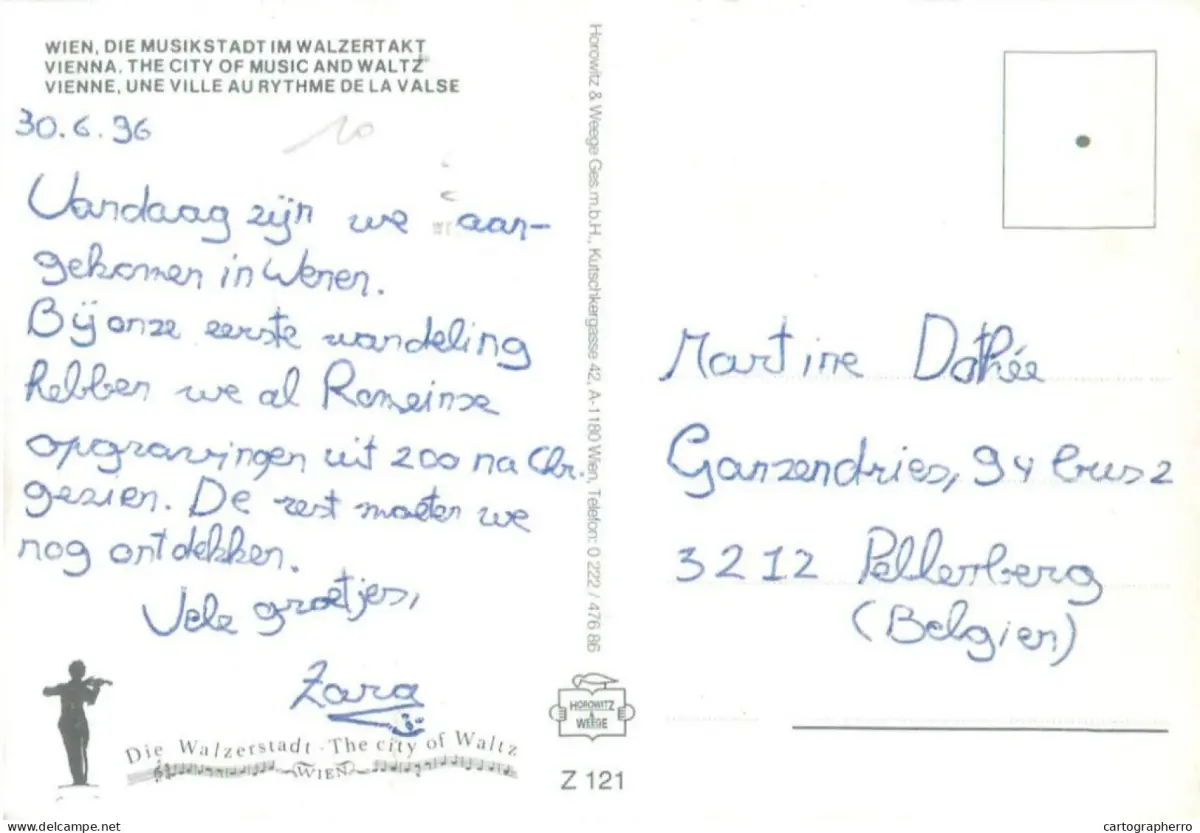 WIEN, DIE MUSIKSTADT IM WALZERTAKT
VIENNA, THE CITY OF MUSIC AND WALTZ
VIENNE, UNE VILLE AU RYTHME DE LA VALSE
30.6.96
10
Vandaag zijn we aan-
gekomen in Wenen.
Bij onze eerste wandeling
hebben we al Romeinse
opgravingen uit 200 na Chr.
gezien. De rest moeten we
nog ontdekken.
Vele groetjes,
Zara
Die Walzerstadt · The city of Waltz
WIEN
Horowitz & Weege Ges.m.b.H., Kutschkergasse 42, A-1180 Wien, Telefon: 0 222 / 476 86
HOROWITZ
&
WEEGE
Z 121
Martine Dothée
Ganzendries, 94 bus 2
3212 Pellenberg
(Belgien)
www.delcampe.net
cartographerro